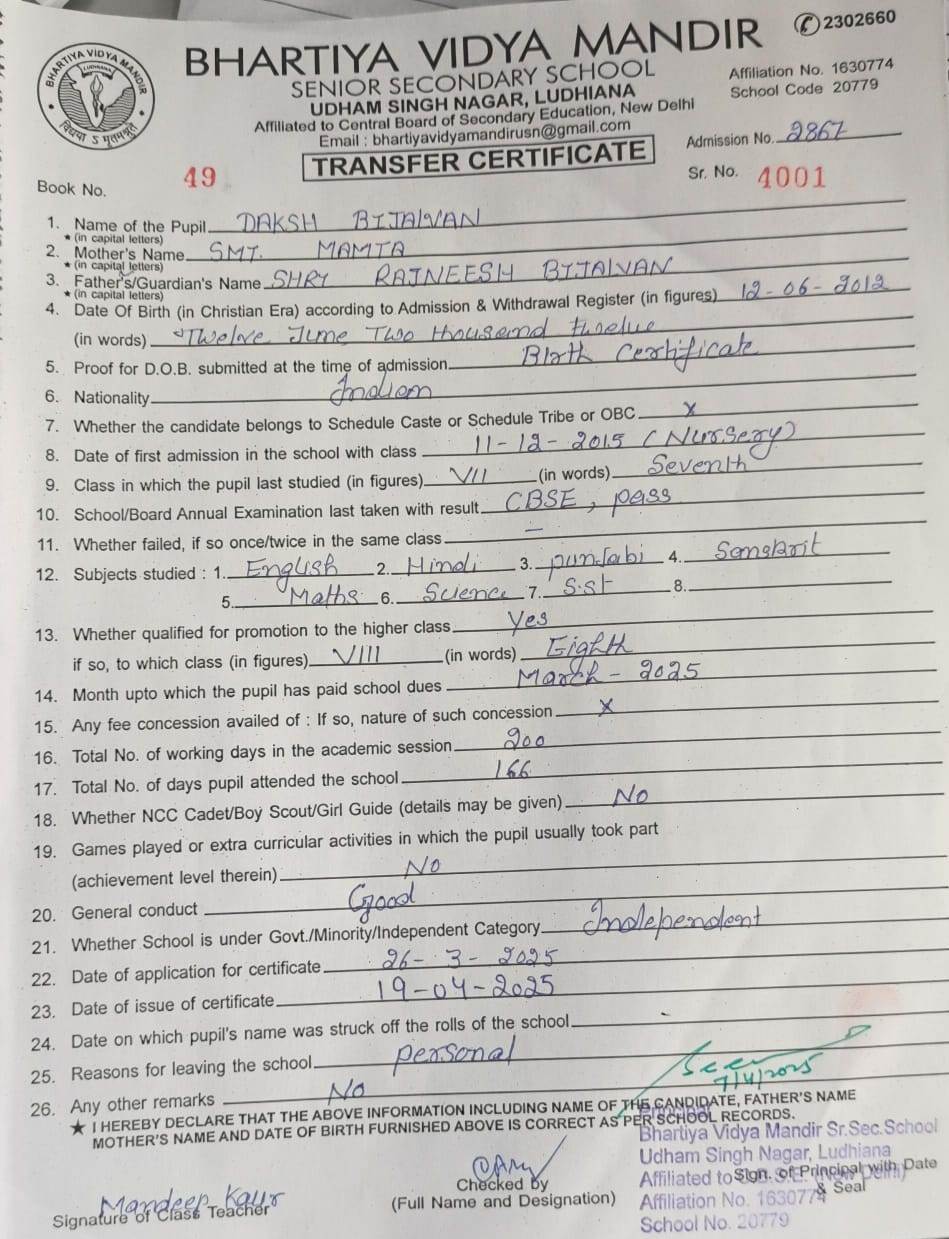 ✆ 2302660
BHARTIYA VIDYA MANDIR
SENIOR SECONDARY SCHOOL
UDHAM SINGH NAGAR, LUDHIANA
Affiliated to Central Board of Secondary Education, New Delhi
Email : bhartiyavidyamandirusn@gmail.com
Affiliation No. 1630774
School Code 20779
BHARTIYA VIDYA MANDIR
LUDHIANA
TRANSFER CERTIFICATE
Admission No. 2867
Book No. 49
Sr. No. 4001
1. Name of the Pupil DAKSH BIJALVAN
★ (in capital letters)
2. Mother's Name SMT. MAMTA
★ (in capital letters)
3. Father's/Guardian's Name SHRI RAJNEESH BIJALVAN
★ (in capital letters)
4. Date Of Birth (in Christian Era) according to Admission & Withdrawal Register (in figures) 12-06-2012
(in words) Twelve June Two thousand twelve
5. Proof for D.O.B. submitted at the time of admission Birth Certificate
6. Nationality Indian
7. Whether the candidate belongs to Schedule Caste or Schedule Tribe or OBC X
8. Date of first admission in the school with class 11-12-2015 (Nursery)
9. Class in which the pupil last studied (in figures) VII (in words) Seventh
10. School/Board Annual Examination last taken with result CBSE, pass
11. Whether failed, if so once/twice in the same class –
12. Subjects studied : 1. English 2. Hindi 3. punjabi 4. Sanskrit
5. Maths 6. Science 7. S.st 8.
13. Whether qualified for promotion to the higher class Yes
if so, to which class (in figures) VIII (in words) Eighth
14. Month upto which the pupil has paid school dues March - 2025
15. Any fee concession availed of : If so, nature of such concession X
16. Total No. of working days in the academic session 200
17. Total No. of days pupil attended the school 166
18. Whether NCC Cadet/Boy Scout/Girl Guide (details may be given) No
19. Games played or extra curricular activities in which the pupil usually took part
(achievement level therein) No
20. General conduct Good
21. Whether School is under Govt./Minority/Independent Category Independent
22. Date of application for certificate 26-3-2025
23. Date of issue of certificate 19-04-2025
24. Date on which pupil's name was struck off the rolls of the school -
25. Reasons for leaving the school personal
26. Any other remarks No
★ I HEREBY DECLARE THAT THE ABOVE INFORMATION INCLUDING NAME OF THE CANDIDATE, FATHER'S NAME
MOTHER'S NAME AND DATE OF BIRTH FURNISHED ABOVE IS CORRECT AS PER SCHOOL RECORDS.
Principal
Bhartiya Vidya Mandir Sr.Sec.School
Udham Singh Nagar, Ludhiana
Affiliated to C.B.S.E. (New Delhi)
Affiliation No. 1630774
School No. 20779
Sign. of Principal with Date
& Seal
Mandeep Kaur
Signature of Class Teacher
Checked by
(Full Name and Designation)